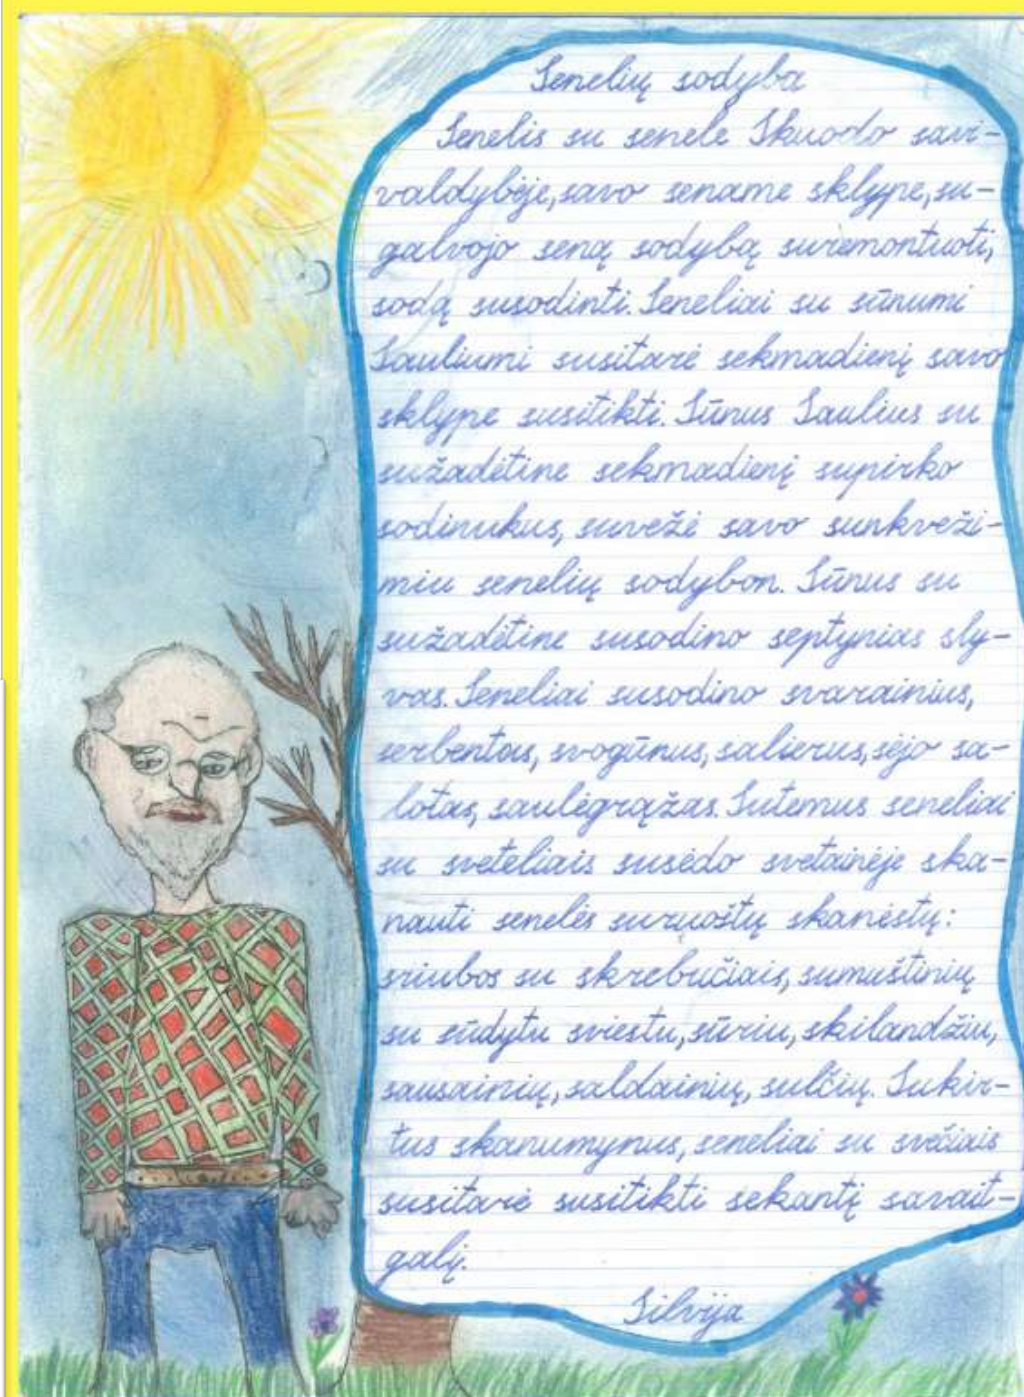 Senelių sodyba
Senelis su senele Skuodo savi-
valdybėje, savo sename sklype, su-
galvojo seną sodybą suremontuoti,
sodą susodinti. Seneliai su sūnumi
Sauliumi susitarė sekmadienį savo
sklype susitikti. Sūnus Saulius su
sužadėtine sekmadienį supirko
sodinukus, suvežė savo sunkveži-
miu senelių sodybon. Sūnus su
sužadėtine susodino septynias sly-
vas. Seneliai susodino svarainius,
serbentas, svogūnus, salierus, sėjo sa-
lotas, saulėgrąžas. Sutemus seneliai
su sveteliais susėdo svetainėje ska-
nauti senelės suruoštų skanėstų:
sriubos su skrebučiais, sumuštinių
su sūdytu sviestu, sūriu, skilandžiu,
sausainių, saldainių, sulčių. Sukir-
tus skanumynus, seneliai su svečiais
susitarė susitikti sekantį savait-
galį.
Silvija